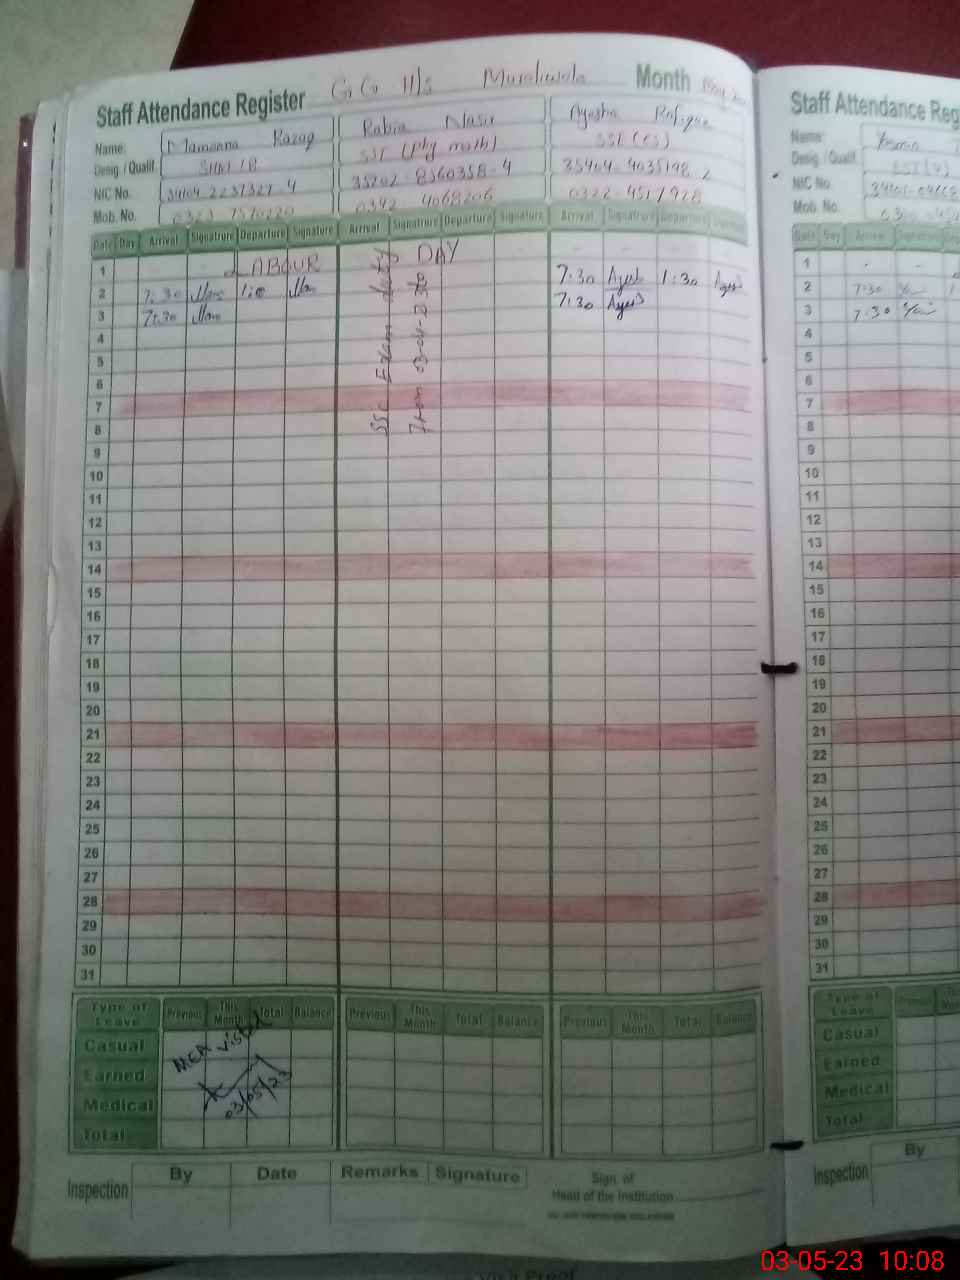 Staff Attendance Register G.G H/S Muraliwala Month May
Name: Mamoona Razaq Rabia Nasir Ayesha Rafique
Desig / Qualif. SSL (phy math) SSL (cs)
NIC No. 34104 2237327 4 35202 - 8560358 - 4 35404 - 4035198 2
Mob. No. 0323 7570220 0342 4068206 0322-4517928
Date Day Arrival Signatrure Departure Signature Arrival Signatrure Departure Signature Arrival Signatrure Departure Signature
1 LABOUR DAY
2 7:30 1:0 7:30 Ayesh 1:30 Ayesh
3 7:30 7:30 Ayesh
SSC Exam duty
From 03-04-23 to
4
5
6
7
8
9
10
11
12
13
14
15
16
17
18
19
20
21
22
23
24
25
26
27
28
29
30
31
Type of Leave Previous This Month Total Balance Previous This Month Total Balance Previous This Month Total Balance
Casual
Earned
Medical
Total
MEA visited
03/05/23
Inspection By Date Remarks Signature Sign. of
Head of the Institution
Staff Attendance Reg
Name:
Desig / Qualif. SST
NIC No.
Mob. No. 0300
Date Day Arrival
1
2 7:30
3 7:30
4
5
6
7
8
9
10
11
12
13
14
15
16
17
18
19
20
21
22
23
24
25
26
27
28
29
30
31
Type of Leave Previous
Casual
Earned
Medical
Total
Inspection By
03-05-23 10:08